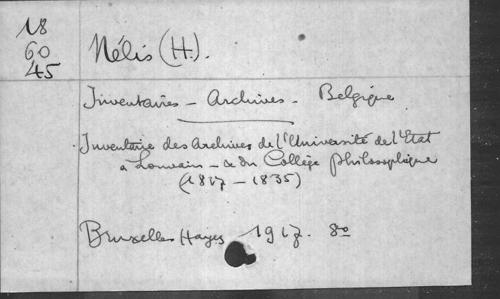 18
60
45
Nélis (H.).
Inventaires - Archives. Belgique
Inventaire des Archives de l'Université de l'Etat
à Louvain - & du Collège philosophique
(1817 - 1835)
Bruxelles Hayez 1917. 8º